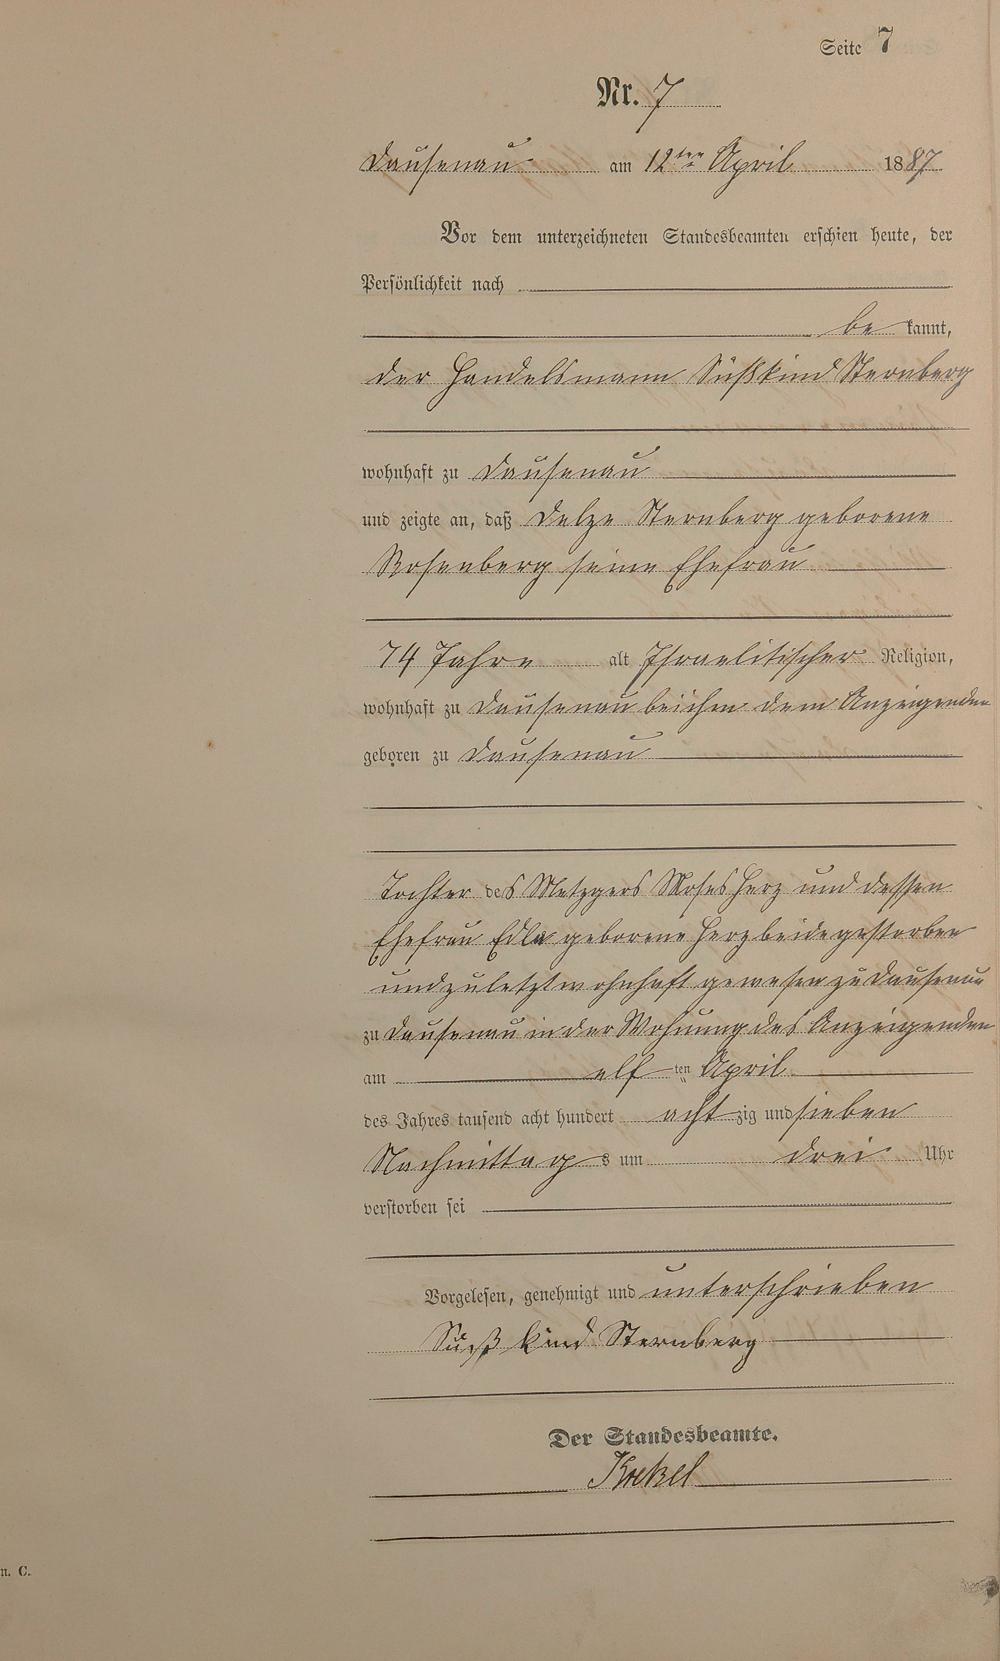 Seite 7
Nr. 7
Dausenau am 12ten April 1887
Vor dem unterzeichneten Standesbeamten erschien heute, der
Persönlichkeit nach
be kannt,
der Handelsmann Süßkind Sternberg
wohnhaft zu Dausenau
und zeigte an, daß Delze Sternberg geborene
Rosenberg seine Ehefrau
74 Jahre alt Israelitischer Religion,
wohnhaft zu Dausenau bei ihm dem Anzeigenden
geboren zu Dausenau
Tochter des Metzgers Moses Herz und dessen
Ehefrau Edla geborene Herz beide gestorben
und zuletzt wohnhaft gewesen zu Dausenau
zu Dausenau in der Wohnung des Anzeigenden
am elf ten April
des Jahres tausend acht hundert acht zig und sieben
Nachmittag s um drei Uhr
verstorben sei
Vorgelesen, genehmigt und unterschrieben
Süß kind Sternberg
Der Standesbeamte.
Krekel
n. C.